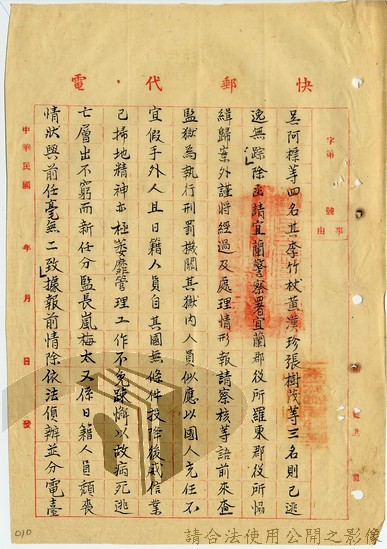 快郵代電
字第 號
事由
吳阿標等四名其李竹杕黃漢珍張樹茂等三名則已逃
逸無踪除函請宜蘭警察署宜蘭郡役所羅東郡役所協
緝歸案外謹將經過及處理情形報請察核等語前來查
監獄為執行刑罰機關其獄內人員似應以國人充任不
宜假手外人且日籍人員自其國無條件投降後威信業
已掃地精神亦極萎靡管理工作不免疎懈以致病死逃
亡層出不窮而新任分監長嵐梅太又係日籍人員頹喪
情狀與前任毫無二致據報前情除依法偵辦並分電臺
中華民國 年 月 日 發
010
請合法使用公開之影像